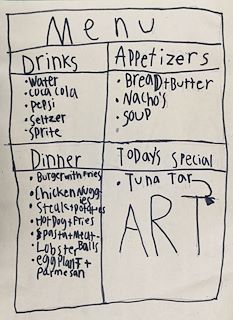 Menu
Drinks
• Water
• coca cola
• pepsi
• Seltzer
• Sprite
Appetizers
• Bread + Butter
• Nacho's
• soup
Dinner
• Burger with fries
• Chicken nugg-
ies
• Steak + potatoes
• Hot Dog + Fries
• Spasta + meat-
Balls
• Lobster
• eggplant +
parmesan
Today's Special
• Tuna Tar
ART